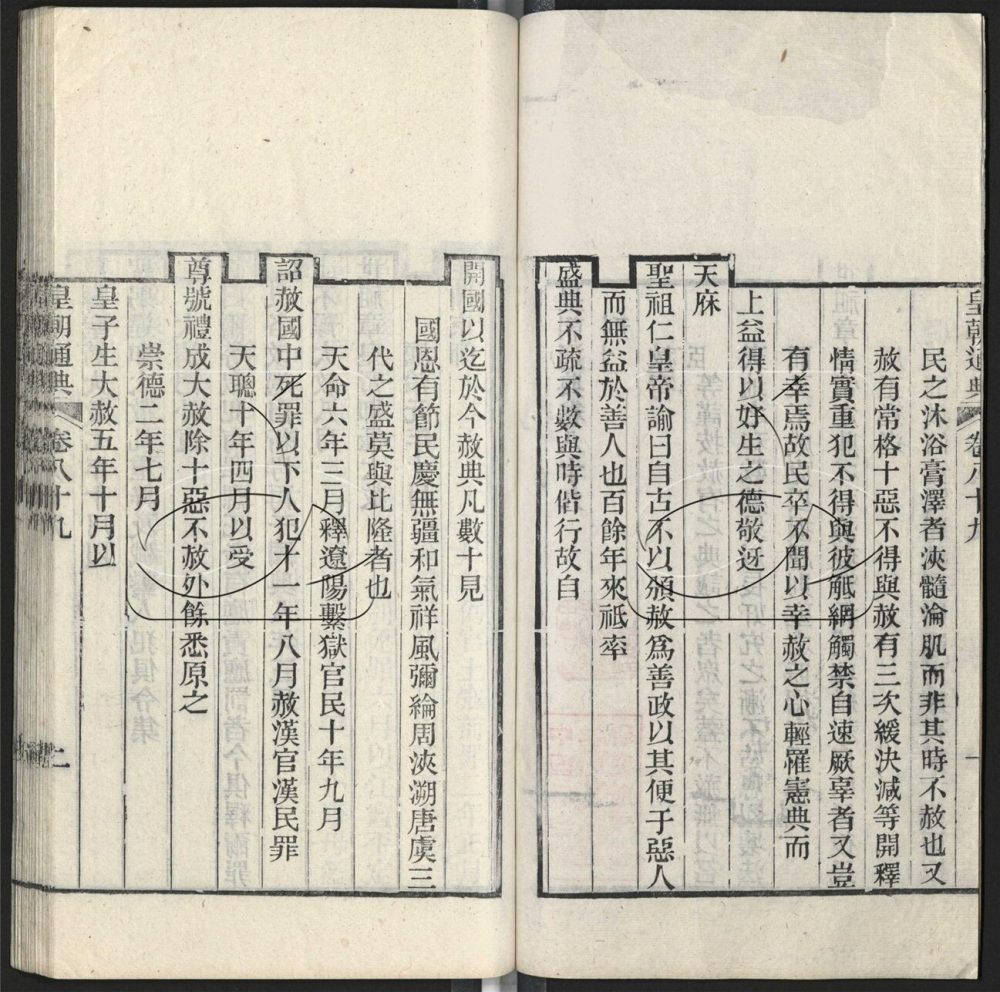 皇朝通典 卷八十九 一
民之沐浴膏澤者浹髓淪肌而非其時不赦也又
赦有常格十惡不得與赦有三次緩決減等開釋
情實重犯不得與彼觝網觸禁自速厥辜者又豈
有幸焉故民卒不聞以幸赦之心輕罹憲典而
上益得以好生之德敬迓
天庥
聖祖仁皇帝諭曰自古不以頒赦爲善政以其便于惡人
而無益於善人也百餘年來祗率
盛典不疏不數與時偕行故自
開國以迄於今赦典凡數十見
國恩有節民慶無疆和氣祥風彌綸周浹溯唐虞三
代之盛莫與比隆者也
天命六年三月釋遼陽繫獄官民十年九月
詔赦國中死罪以下人犯十一年八月赦漢官漢民罪
天聰十年四月以受
尊號禮成大赦除十惡不赦外餘悉原之
崇德二年七月
皇子生大赦五年十月以
皇朝通典 卷八十九 二